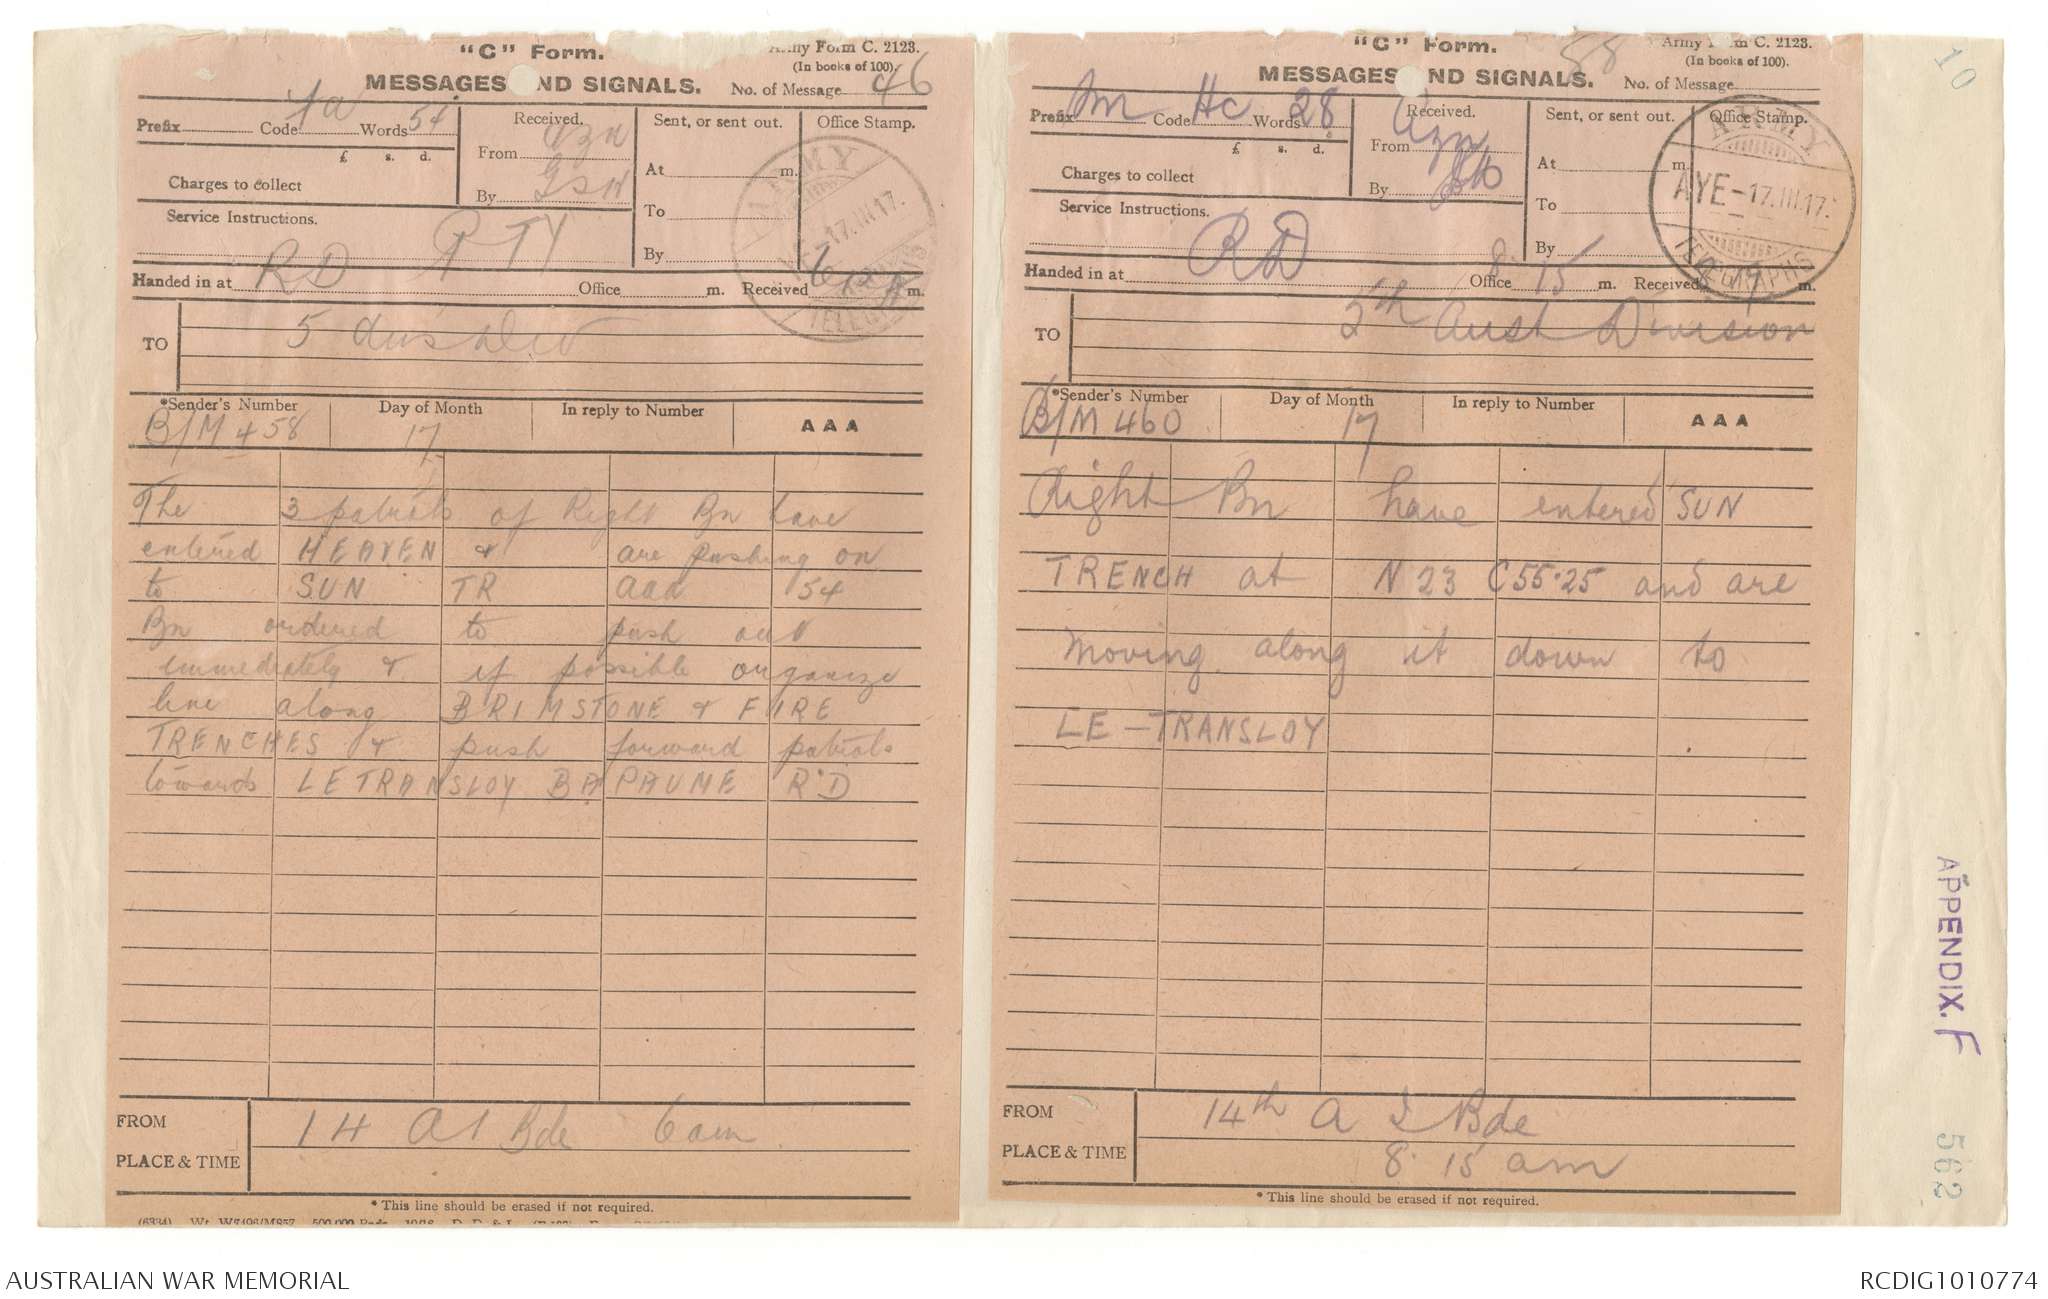 "C" Form.
Army Form C. 2123.
(In books of 100).
MESSAGES AND SIGNALS.
No. of Message 46
Prefix Code Words 54
Received.
From Azn
By
Sent, or sent out.
At m.
To
By
Office Stamp.
ARMY
17.III.17.
TELEGRAPHS
£ s. d.
Charges to collect
Service Instructions.
PTY
Handed in at RD Office m. Received m.
TO 5 Aus Div
*Sender's Number
Day of Month
In reply to Number
AAA
B/M 458
17
The 3 patrols of Right Bn have
entered HEAVEN & are pushing on
to SUN TR aaa 54
Bn ordered to push out
immediately & if possible organize
line along BRIMSTONE & FIRE
TRENCHES & push forward patrols
towards LE TRANSLOY BAPAUME RD
FROM
PLACE & TIME
14 AI Bde 6 am
*This line should be erased if not required.
"C" Form.
Army Form C. 2123.
(In books of 100).
MESSAGES AND SIGNALS.
88
No. of Message
Prefix Sm Code Hc Words 28
Received.
From Azn
By
Sent, or sent out.
At m.
To
By
Office Stamp.
ARMY
AYE-17.III.17.
TELEGRAPHS
£ s. d.
Charges to collect
Service Instructions.
Handed in at RD Office 8.15 m. Received m.
TO 5th Aust Division
*Sender's Number
Day of Month
In reply to Number
AAA
B/M 460
17
Right Bn have entered SUN
TRENCH at N 23 C 55.25 and are
moving along it down to
LE-TRANSLOY
FROM
PLACE & TIME
14th A I Bde
8.15 am
*This line should be erased if not required.
10
APPENDIX. F
562
AUSTRALIAN WAR MEMORIAL
RCDIG1010774